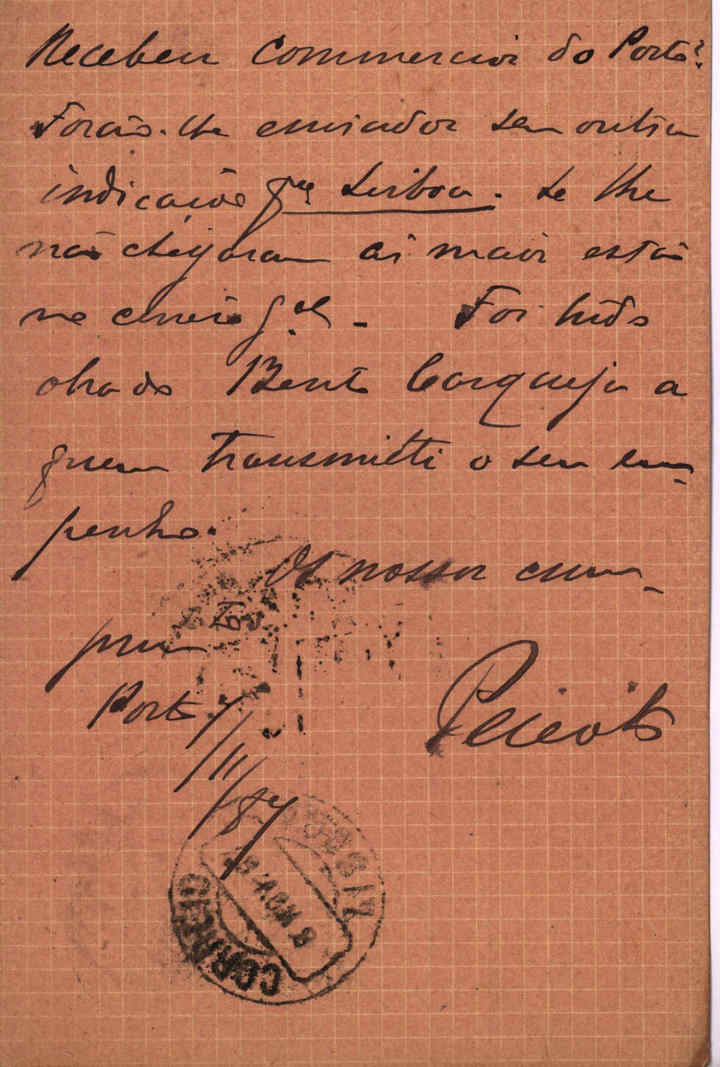 Recebeu Commercios do Porto?
Forão-lhe enviados sem outra
indicação q.ue Lisboa. Se lhe
não chegaram ás mãos estão
no correio g.al - Foi hido
olrado Bento Carqueja a
quem transmitti o seu em-
penho.
Os nossos cum-
prim
Porto
11
Peixoto
CORREIO
LISBOA